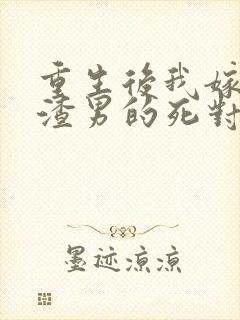 重生後我嫁
渣男的死對
墨迹凉凉